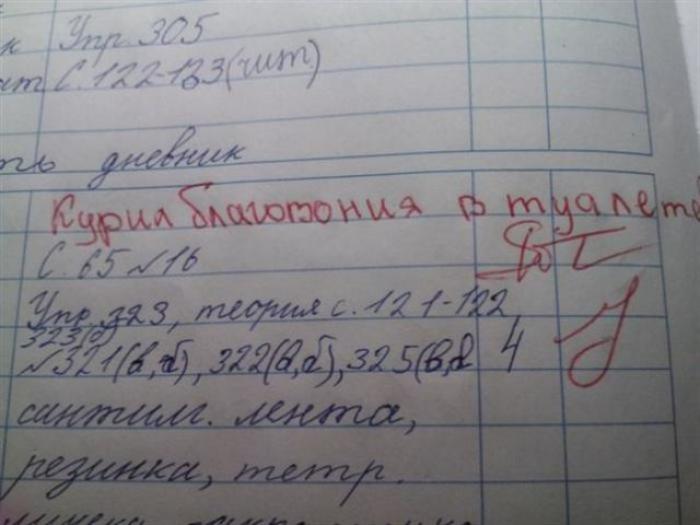 к Упр. 305
ит С. 122-123(чит)
ть дневник
Курил благовония в туалете
С. 65 №16
Упр. 323, теория с. 121-122
323(б)
№321(в,б), 322(в,б), 325(в, 4
сантим. лента,
резинка, тетр.